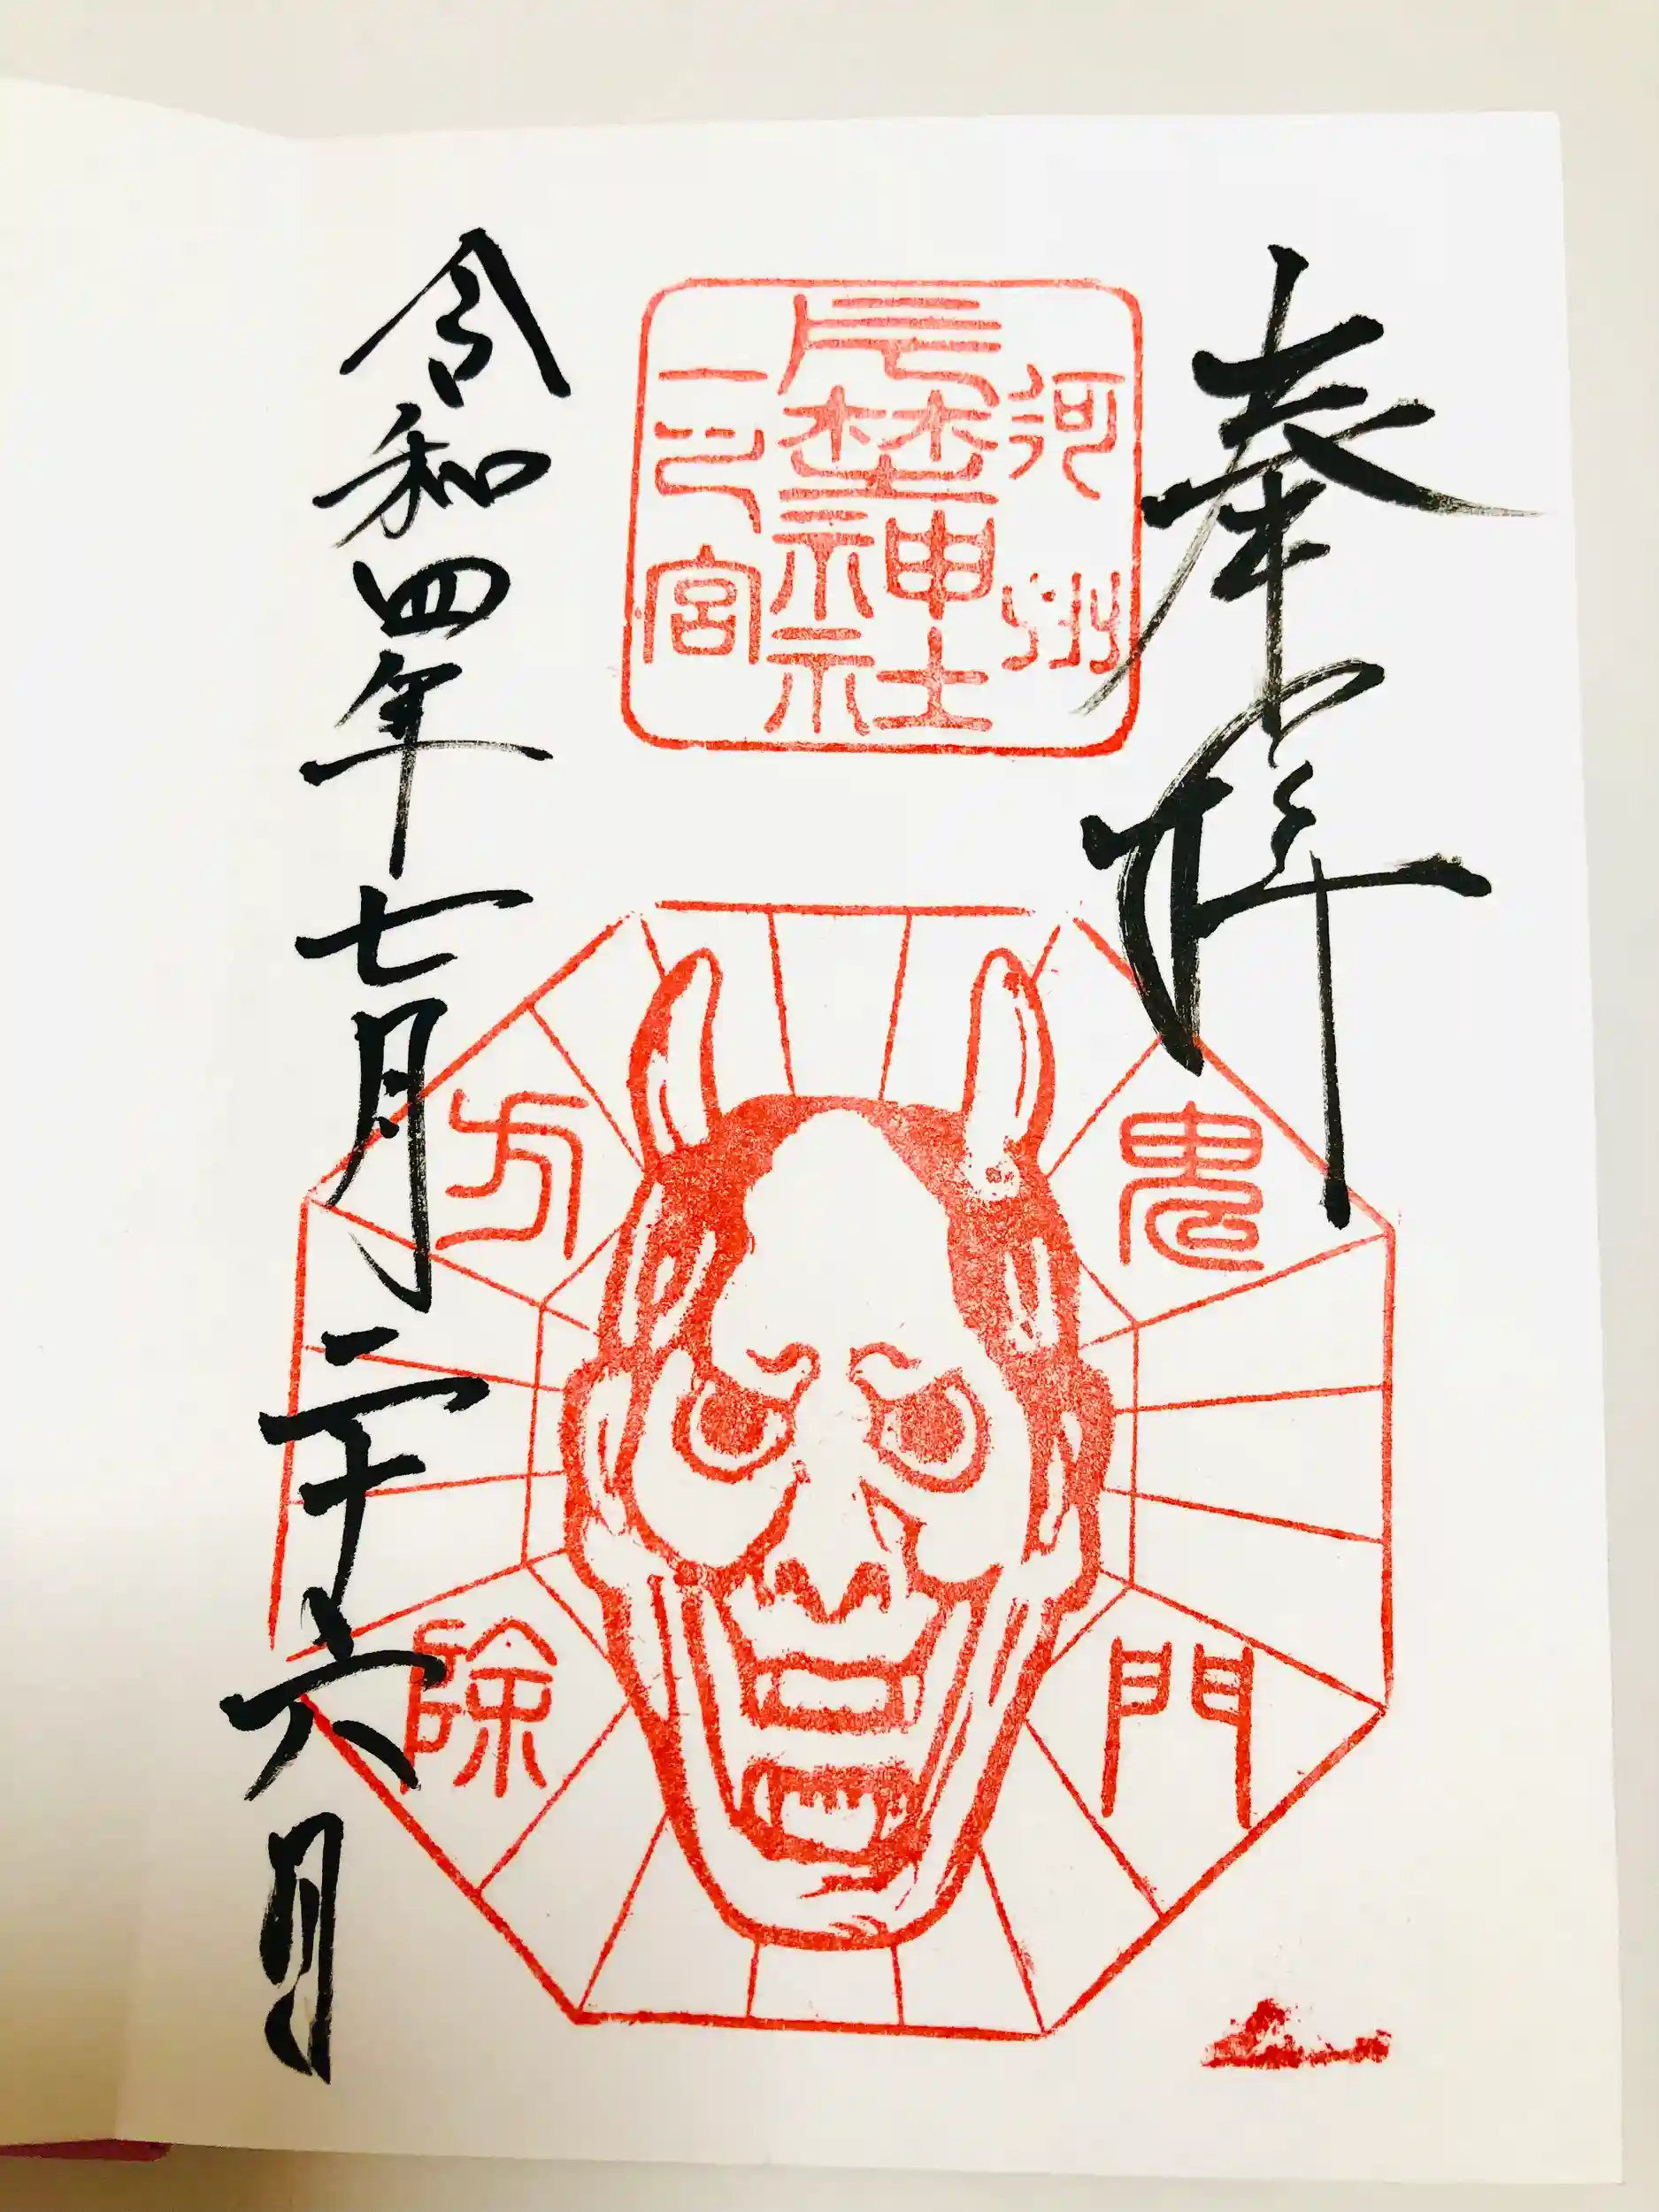 奉拝
河州
片埜神社
一之宮
鬼門
方除
令和四年七月二十六日